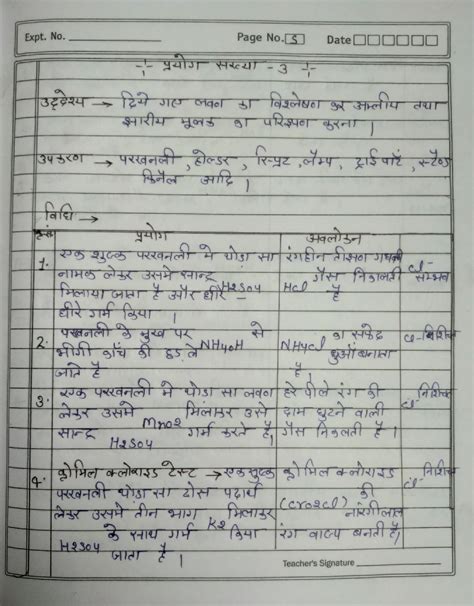 Expt. No. Page No. 5 Date
प्रयोग संख्या - 3
उद्देश्य → दिये गए लवण का विश्लेषण कर अम्लीय तथा
क्षारीय मूलक का परिक्षण करना।
उपकरण → परखनली, होल्डर, स्प्रिट, लैम्प, ट्राई पॉट, स्टैण्ड
आदि।
विधि →
प्रयोग अवलोकन
1. एक शुष्क परखनली मे थोडा सा रंगहीन तीक्ष्ण गंध
नामक लेकर उसमे सान्द्र H2SO4 गैस निकालती Cl- सम्भव
मिलाया जाता है और धीरे - HCl है
धीरे गर्म किया।
2. परखनली के मुख पर से का सफेद
भीगी काँच की छड ले NH4OH NH4Cl धुआँ बनाता Cl-
जाते है
3. एक परखनली मे थोडा सा लवण हरे पीले रंग की
लेकर उसमे MnO2 मिलाकर उसे दाम घुटने वाली Cl-
सान्द्र H2SO4 गर्म करते है, गैस निकलती है।
4. क्रोमिल क्लोराइड टेस्ट → एक शुष्क क्रोमिल क्लोराइड
परखनली थोडा सा ठोस पदार्थ (Cro2cl) की Cl-
लेकर उसमे तीन भाग K2 मिलाकर नारंगी लाल
H2SO4 के साथ गर्म किया रंग वाष्प बनती है।
जाता है।
Teacher's Signature